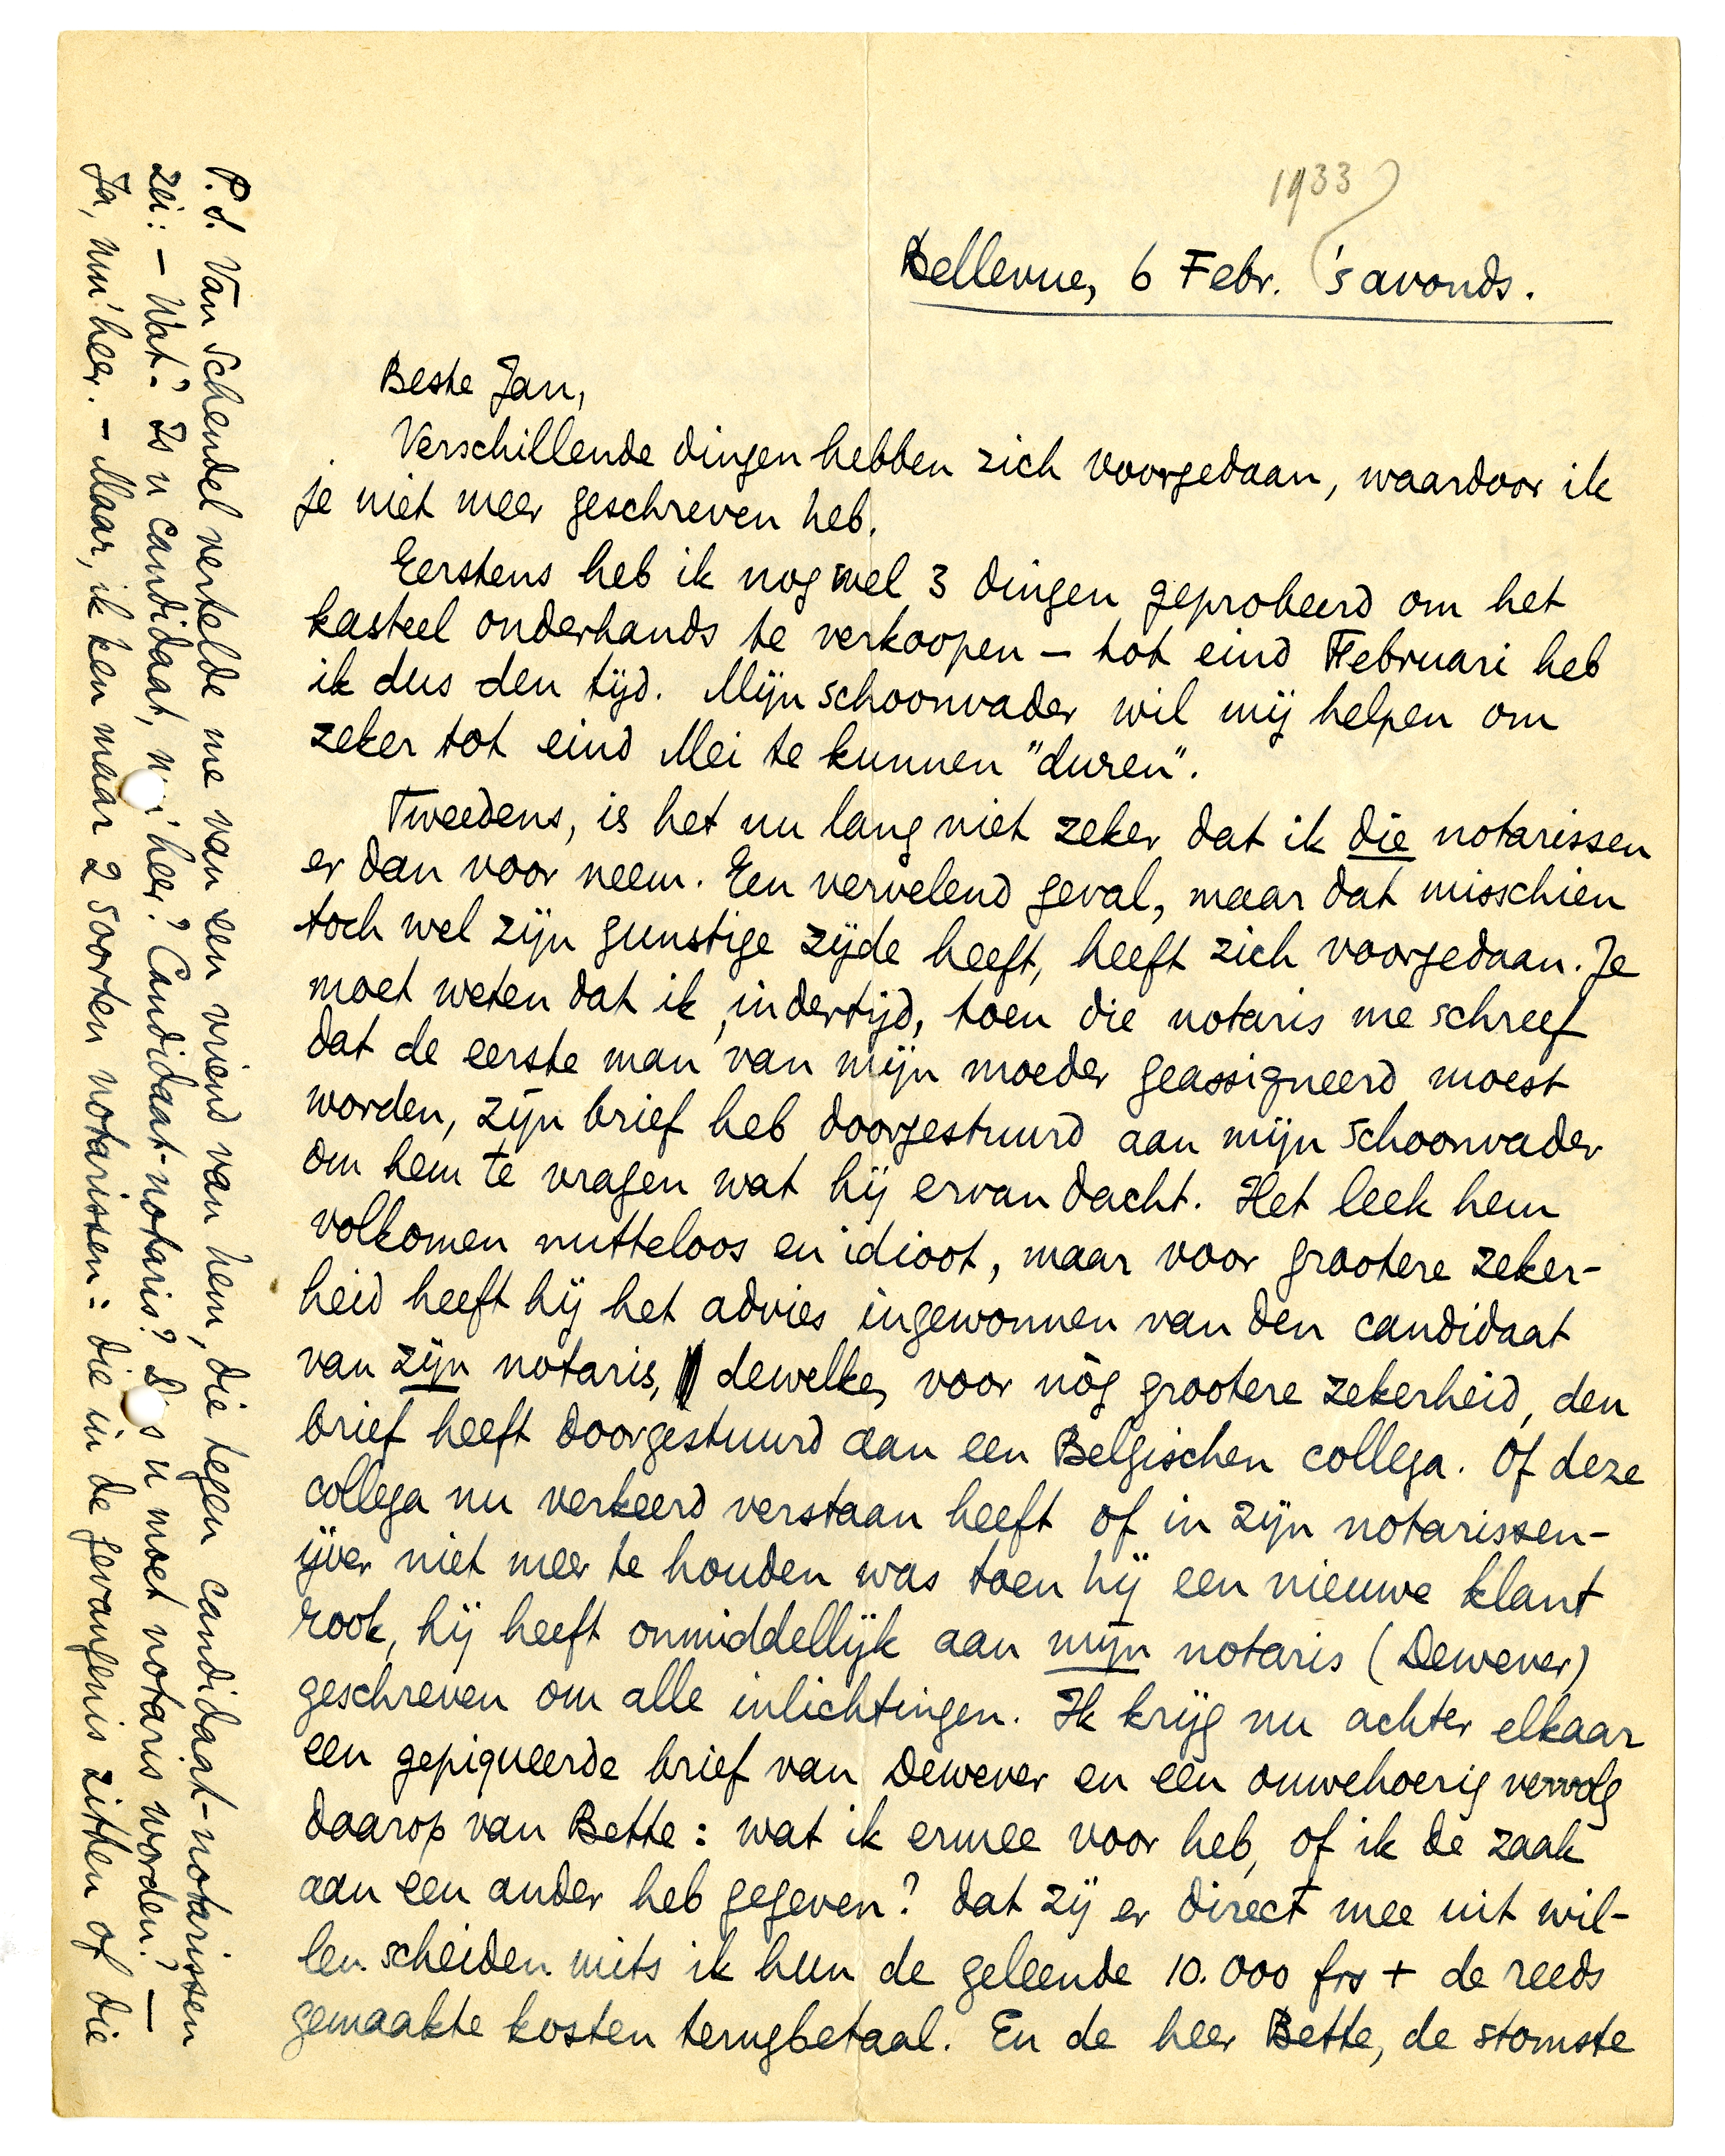 1933
Bellevue, 6 Febr. 's avonds.
Beste Jan,
Verschillende dingen hebben zich voorgedaan, waardoor ik
je niet meer geschreven heb.
Eerstens heb ik nog wel 3 dingen geprobeerd om het
kasteel onderhands te verkoopen — tot eind Februari heb
ik dus den tijd. Mijn schoonvader wil mij helpen om
zeker tot eind Mei te kunnen "duren".
Tweedens, is het nu lang niet zeker dat ik die notarissen
er dan voor neem. Een vervelend geval, maar dat misschien
toch wel zijn gunstige zijde heeft, heeft zich voorgedaan. Je
moet weten dat ik, indertijd, toen die notaris me schreef
dat de eerste man van mijn moeder geassigneerd moest
worden, zijn brief heb doorgestuurd aan mijn schoonvader
om hem te vragen wat hij ervan dacht. Het leek hem
volkomen nutteloos en idioot, maar voor grootere zeker-
heid heeft hij het advies ingewonnen van den candidaat
van zijn notaris, dewelke, voor nòg grootere zekerheid, den
brief heeft doorgestuurd aan een Belgischen collega. Of deze
collega nu verkeerd verstaan heeft of in zijn notarissen-
ijver niet meer te houden was toen hij een nieuwe klant
rook, hij heeft onmiddellijk aan mijn notaris (Dewever)
geschreven om alle inlichtingen. Ik krijg nu achter elkaar
een gepiqueerde brief van Dewever en een ouwehoerig vervolg
daarop van Bette: wat ik ermee voor heb, of ik de zaak
aan een ander heb gegeven? dat zij er direct mee uit wil-
len scheiden mits ik hun de geleende 10.000 frs + de reeds
gemaakte kosten terugbetaal. En de heer Bette, de stomste
P.S. Van Schendel vertelde me van een vriend van hem, die tegen candidaat-notarissen
zei: — Wat? Is u candidaat, m'nheer? Candidaat-notaris? Dus u moet notaris worden? —
Ja, mn'heer. — Maar, ik ken maar 2 soorten notarissen: die in de gevangenis zitten of die